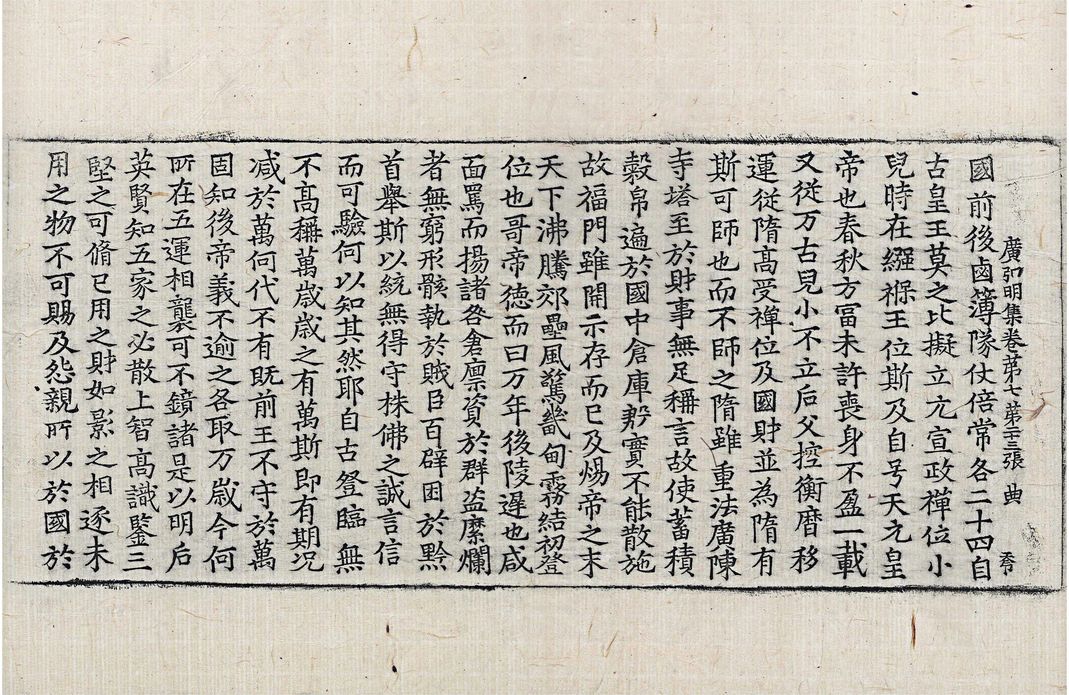 廣弘明集卷第七 第二十三張 典 秀
國前後鹵簿隊仗倍常各二十四自
古皇王莫之比擬立亢宣政禪位小
兒時在繦褓王位斯及自号天元皇
帝也春秋方冨未許喪身不盈一載
又從万古兒小不立后父控衡曆移
運從隋髙受禪位及國財並為隋有
斯可師也而不師之隋雖重法廣陳
寺塔至於財事無足稱言故使蓄積
縠帛遍於國中倉庫尠實不能散施
故福門雖開示存而已及煬帝之末
天下沸騰郊壘風驚畿甸霧結初登
位也哥帝德而曰万年後陵遲也咸
面罵而揚諸咎倉廪資於群盗糜爛
者無窮形骸執於賊臣百辟困於黔
首舉斯以統無得守株佛之誠言信
而可驗何以知其然耶自古登臨無
不髙稱萬歳歳之有萬斯即有期况
减於萬何代不有既前王不守於萬
固知後帝義不逾之各取万歳今何
所在五運相襲可不鏡諸是以明后
英賢知五家之必散上智髙識鑒三
堅之可脩已用之財如影之相逐未
用之物不可賜及怨親所以於國於